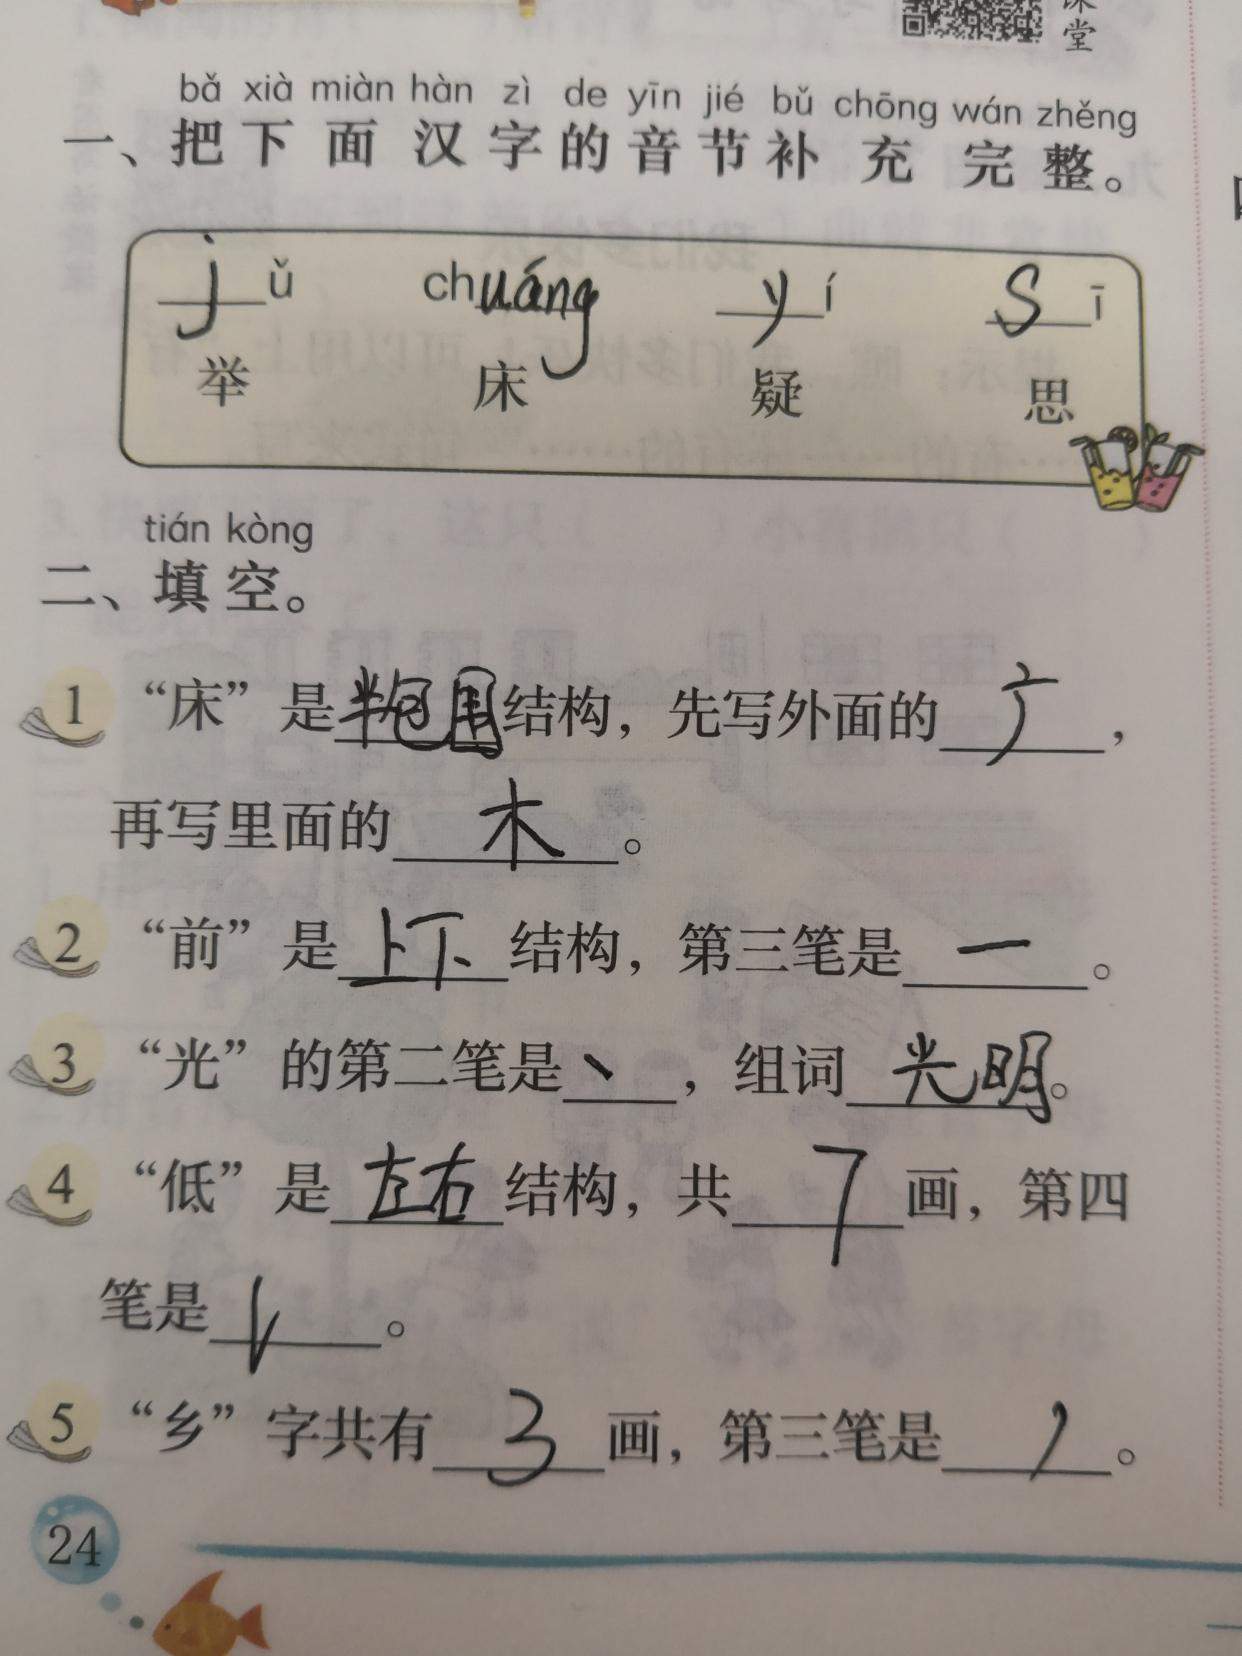 课
堂
bǎ xià miàn hàn zì de yīn jié bǔ chōng wán zhěng
一、把下面汉字的音节补充完整。
jǔ chuáng yí sī
举 床 疑 思
tián kòng
二、填空。
1 “床”是半包围结构，先写外面的广，
再写里面的木。
2 “前”是上下结构，第三笔是一。
3 “光”的第二笔是丶，组词光明。
4 “低”是左右结构，共7画，第四
笔是𠄌。
5 “乡”字共有3画，第三笔是丿。
24